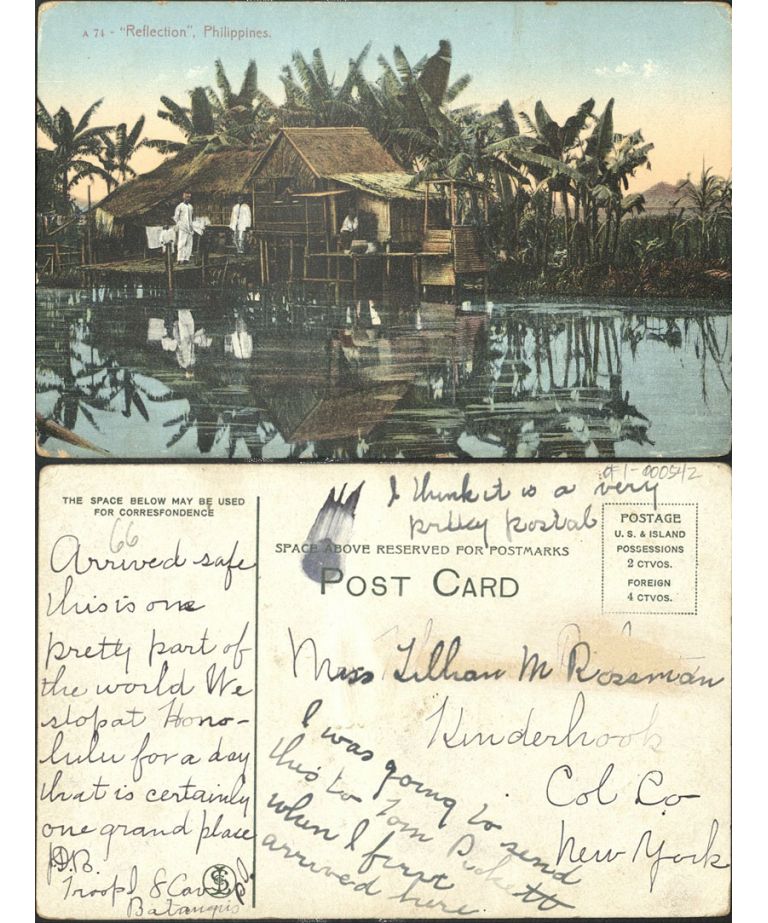 A 74 - "Reflection", Philippines.
THE SPACE BELOW MAY BE USED
FOR CORRESPONDENCE
66
Arrived safe
this is one
pretty part of
the world We
stop at Hono-
lulu for a day
that is certainly
one grand place
Troop 8 Cav
Batangus
I think it is a very
pretty postal
SPACE ABOVE RESERVED FOR POSTMARKS
POST CARD
POSTAGE
U. S. & ISLAND
POSSESSIONS
2 CTVOS.
FOREIGN
4 CTVOS.
Miss Lillian M Rossman
Kinderhook
Col Co
New York
I was going to send
this to Tom Pickett
when I first
arrived here.